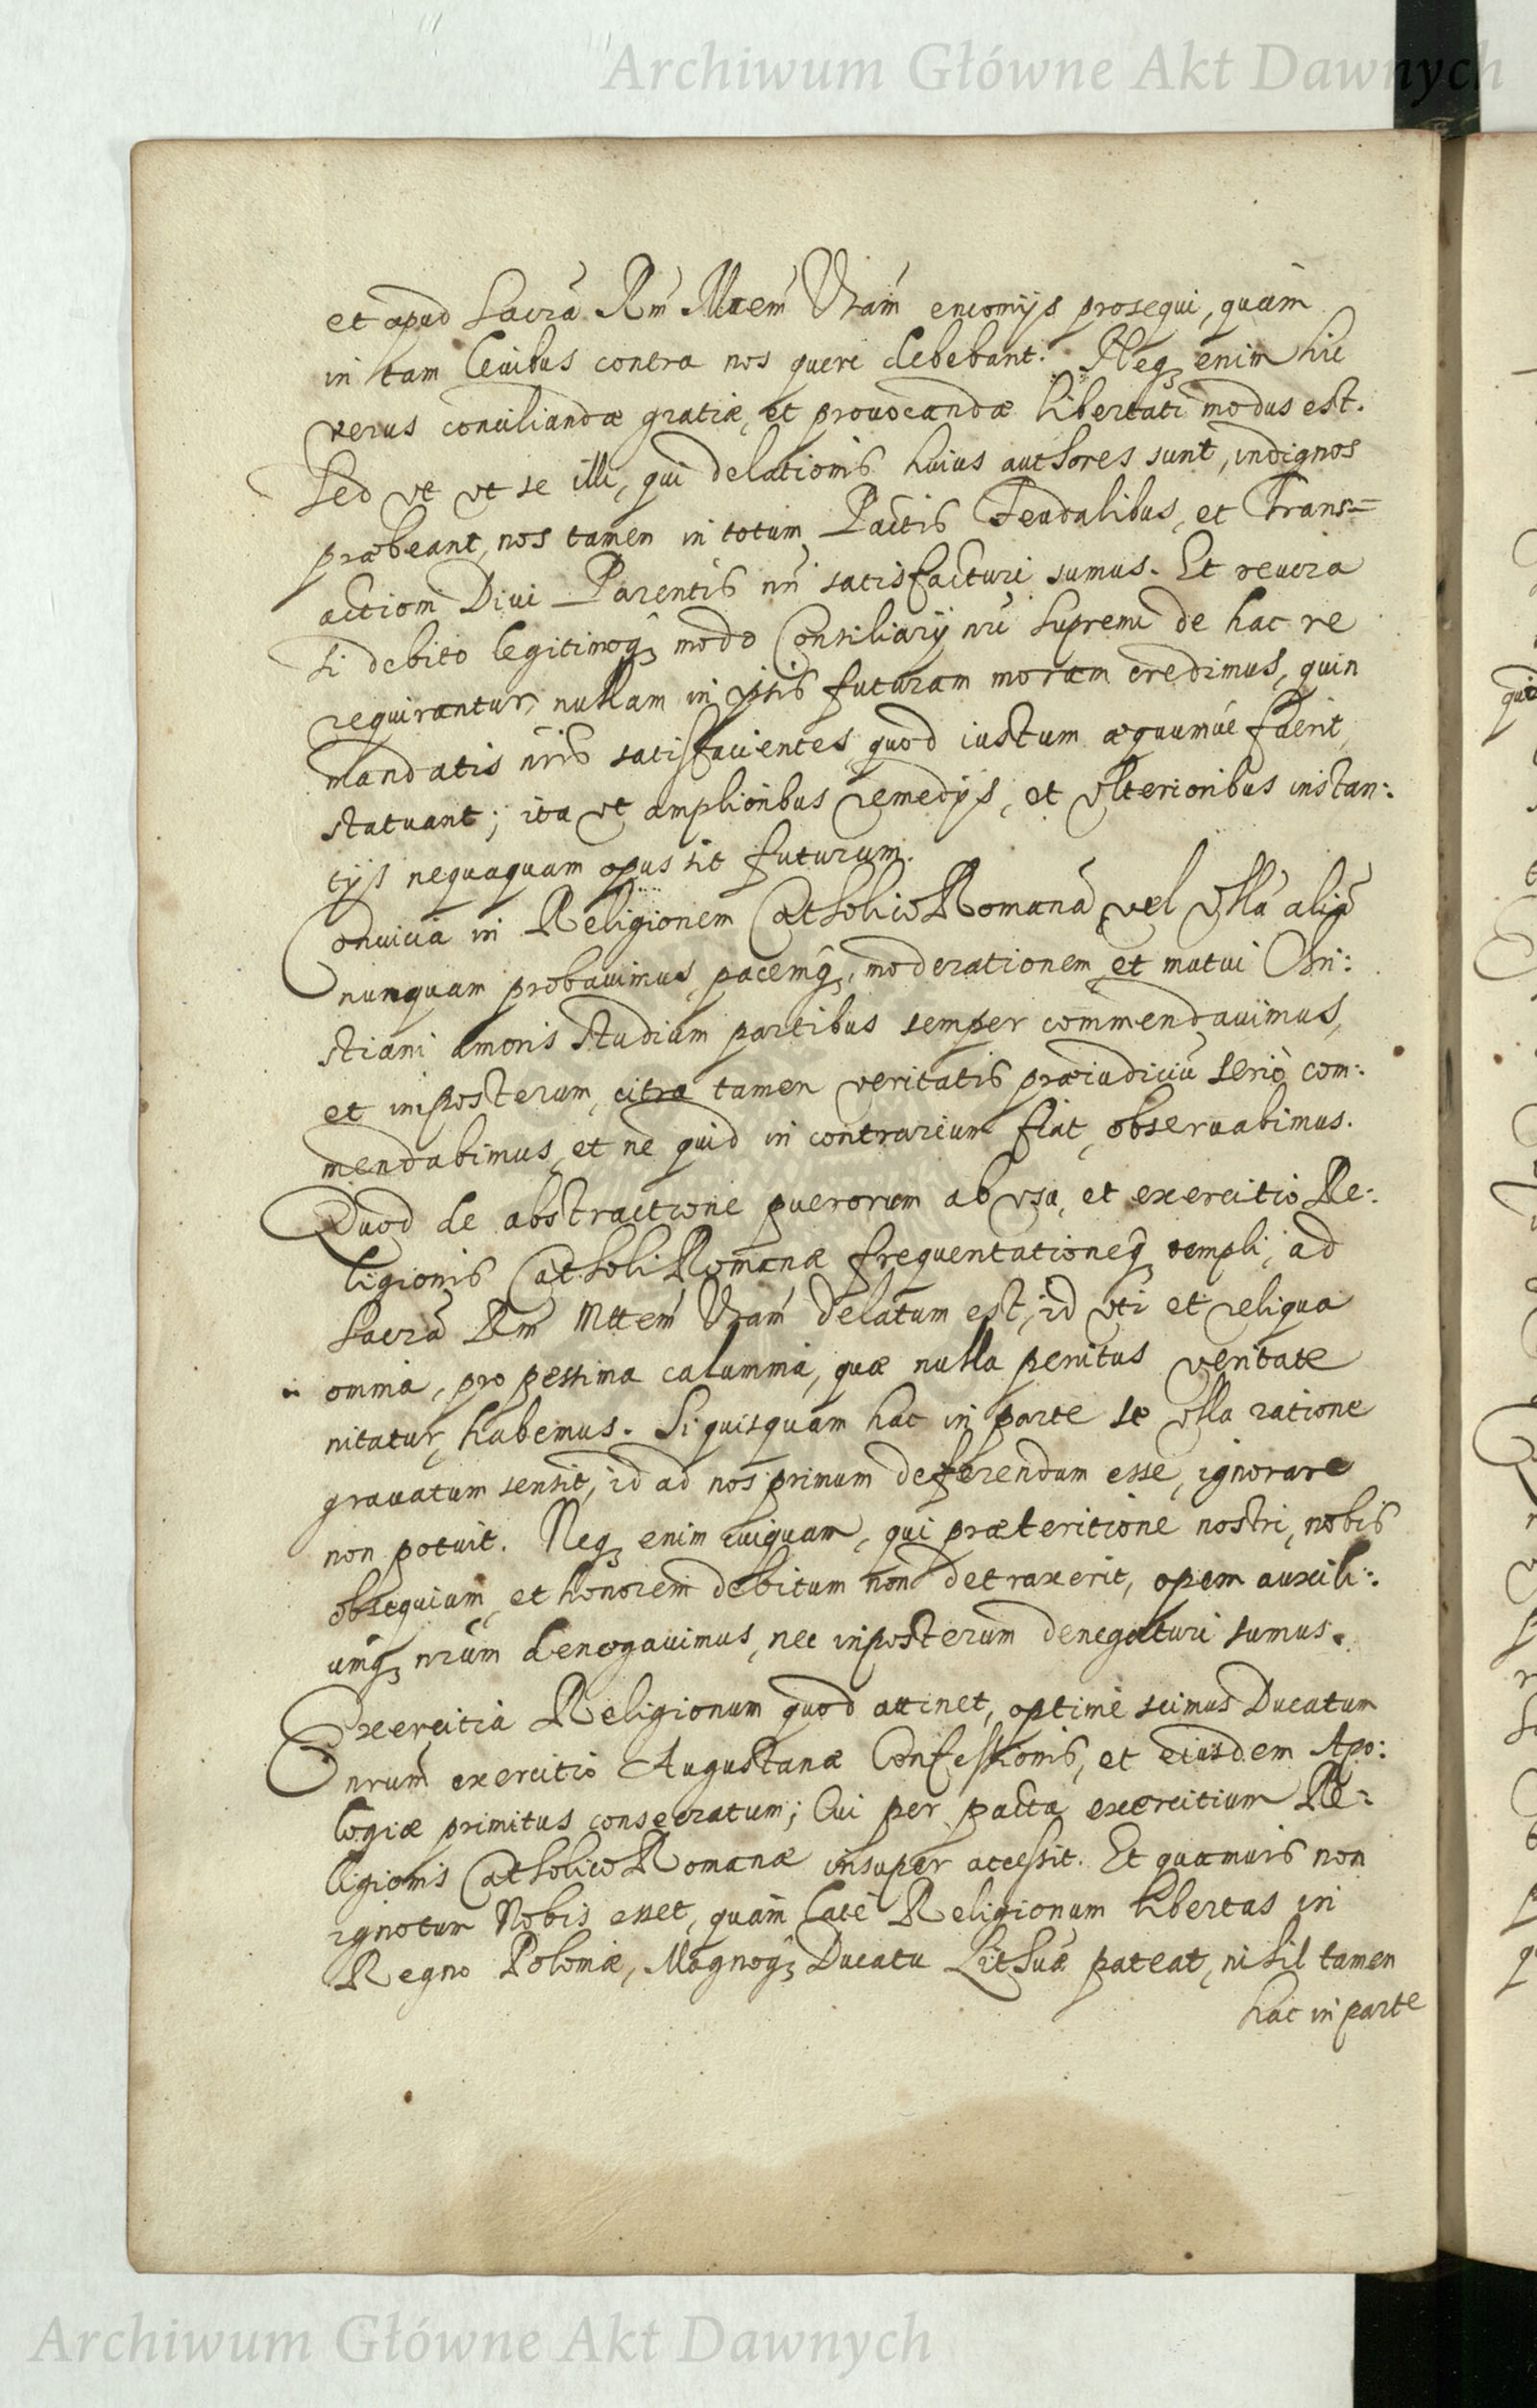 Archiwum Główne Akt Dawnych
et apud Sacrā Rm̄ Mtem̄ Vrām̄ encomijs prosequi, quàm
in tam leuibus contra nos queri debebant. Neqꝫ enim hic
verus conciliandæ gratiæ, et prouocandæ libertati modus est.
Sed ut ut se illi, qui delationis huius authores sunt, indignos
præbeant, nos tamen in totum Pactis Feudalibus, et Trans=
actiom Diui Parentis nr̄i satisfacturi sumus. Et reuera
si debito legitimoqꝫ modo Consiliarij nr̄i Supremi de hac re
requirantur, nullam in ipsis futuram moram credimus, quin
mandatis nr̄is satisfacientes, quod iustum æquumúe fuerit,
statuant; ita ut amplioribus remedijs, et ulterioribus instan:
tijs nequaquam opus sit futurum.
Conuicia in Religionem Catholico Romanā, vel ullā aliā
nunquam probauimus, pacemqꝫ, moderationem, et mutui Chri:
stiani amoris studium partibus semper commendauimus,
et imposterum, citra tamen veritatis præiudiciū seriò com:
mendabimus, et ne quid in contrarium fiat, obseruabimus.
Quod de abstractione puerorum ab usu, et exercitio Re:
ligionis Catholi Romanæ frequentationeqꝫ templi, ad
Sacrā Rm̄ Mttem̄ Vrām̄ delatum est, id uti et reliqua
omnia, pro pessima calumnia, quæ nulla penitus veritate
nitatur, habemus. Si quisquam hac in parte se ulla ratione
grauatum sensit, id ad nos primum deferendum esse, ignorare
non potuit. Neqꝫ enim cuiquam, qui præteritione nostri, nobis
obsequium, et honorem debitum non detraxerit, opem auxili:
umqꝫ nr̄um denegauimus, nec inposterum denegaturi sumus.
Exercitia Religionum quod attinet, optimè scimus Ducatum
nr̄um exercitio Augustanæ Confessionis, et eiusdem Apo:
logiæ primitus consecratum; Cui per pacta exercitium Re:
ligionis Catholico Romanæ insuper accessit. Et quamuis non
ignotum Nobis esset, quàm latè Religionum libertas in
Regno Poloniæ, Magnoqꝫ Ducatu Lithuæ pateat, nihil tamen
hac in parte
Archiwum Główne Akt Dawnych